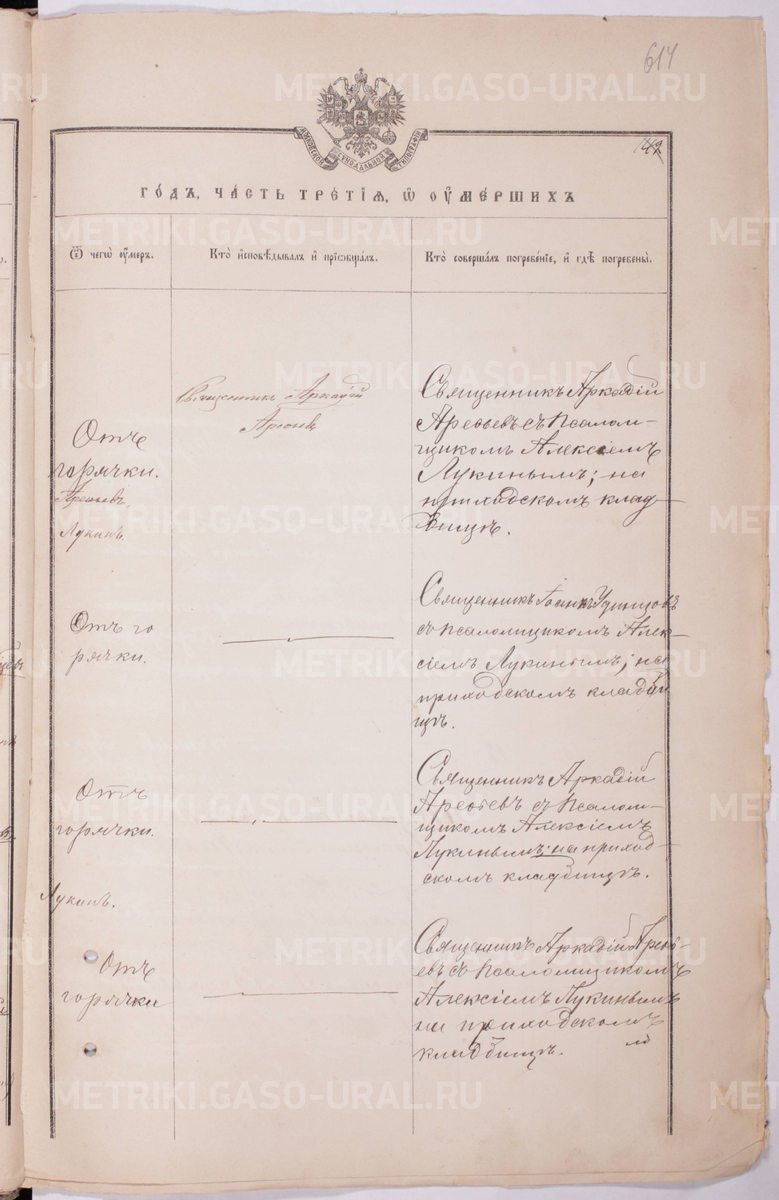 614
МОСКОВСКОЙ СѴНОДАЛЬНОЙ ТИПОГРАФІИ
142
ГОДЪ, ЧАСТЬ ТРЕТІЯ, Ѡ ОУМЕРШИХЪ
Ѿ чегѡ оумеръ.
Кто исповѣдывалъ и пріобщалъ.
Кто совершалъ погребеніе, и гдѣ погребены.
Отъ
горячки.
Арефьевъ
Лукинъ.
Священникъ Аркадій
Арефьевъ
Священникъ Аркадій
Арефьевъ съ псалом-
щикомъ Алексіемъ
Лукинымъ; на
приходскомъ клад-
бищѣ.
Отъ го
рячки.
Священникъ Іоаннъ Удинцовъ
съ псаломщикомъ Алек-
сіемъ Лукинымъ; на
приходскомъ кладби
щѣ.
Отъ
горячки.
Лукинъ.
Священникъ Аркадій
Арефьевъ съ псалом-
щикомъ Алексіемъ
Лукинымъ; на приход-
скомъ кладбищѣ.
Отъ
горячки
Священникъ Аркадій Арефь-
евъ съ псаломщикомъ
Алексіемъ Лукинымъ
на приходскомъ
кладбищѣ.
METRIKI.GASO-URAL.RU